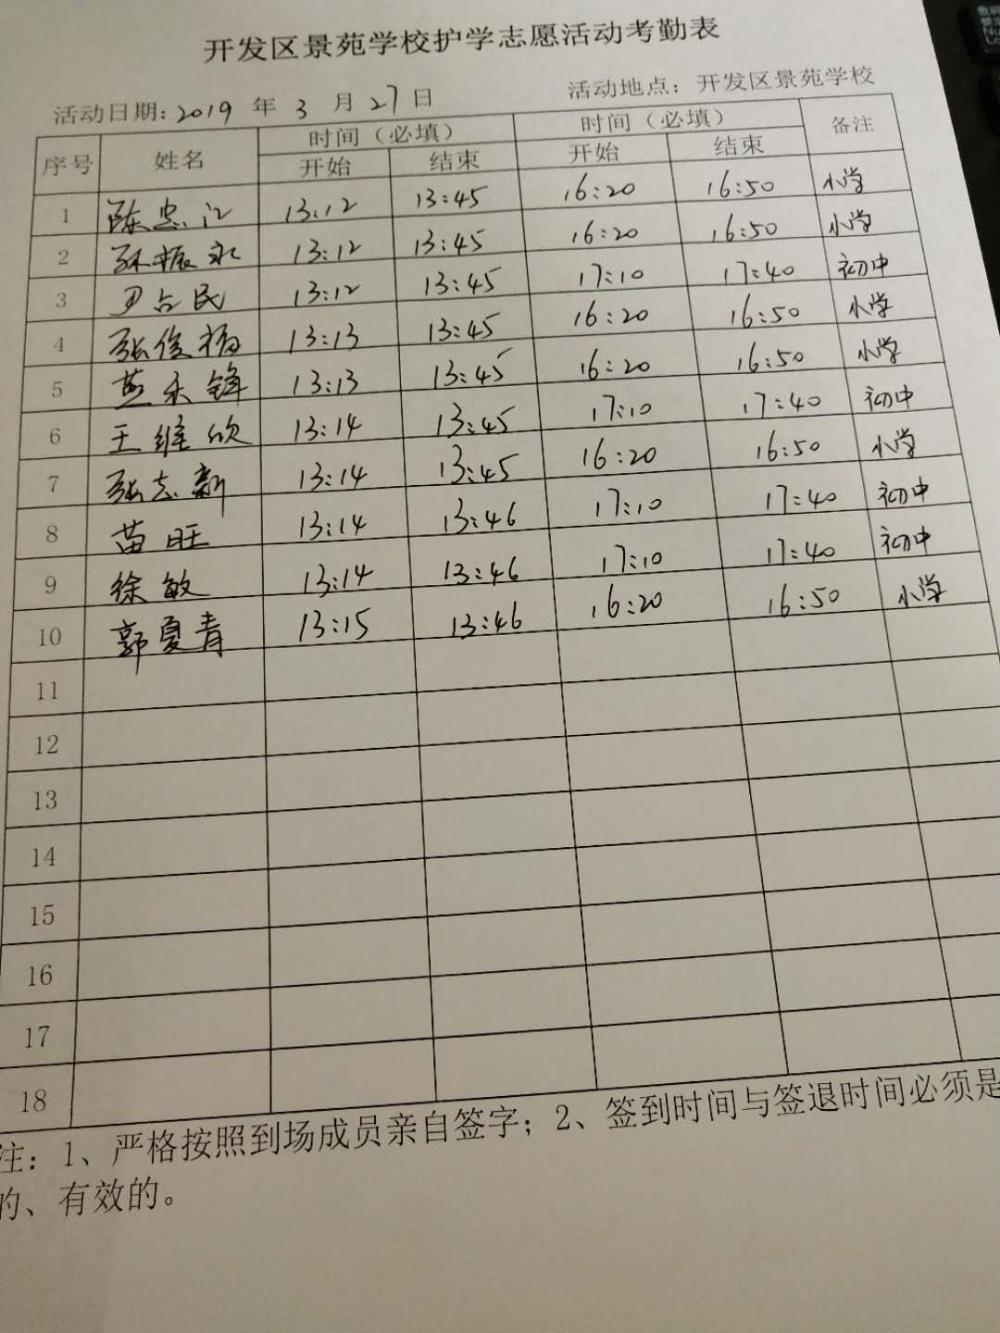 开发区景苑学校护学志愿活动考勤表
活动日期: 2019 年 3 月 27 日 活动地点: 开发区景苑学校
序号 姓名 时间（必填） 时间（必填） 备注
开始 结束 开始 结束
1 陈忠江 13:12 13:45 16:20 16:50 小学
2 孙振永 13:12 13:45 16:20 16:50 小学
3 尹占民 13:12 13:45 17:10 17:40 初中
4 张俊福 13:13 13:45 16:20 16:50 小学
5 燕永锋 13:13 13:45 16:20 16:50 小学
6 王维欣 13:14 13:45 17:10 17:40 初中
7 张志新 13:14 13:45 16:20 16:50 小学
8 苗旺 13:14 13:46 17:10 17:40 初中
9 徐敏 13:14 13:46 17:10 17:40 初中
10 郭夏青 13:15 13:46 16:20 16:50 小学
11
12
13
14
15
16
17
18
注: 1、严格按照到场成员亲自签字; 2、签到时间与签退时间必须是
的、有效的。